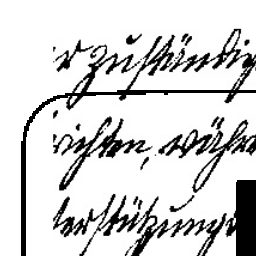 r zuständig
richten, währe
terstützungs